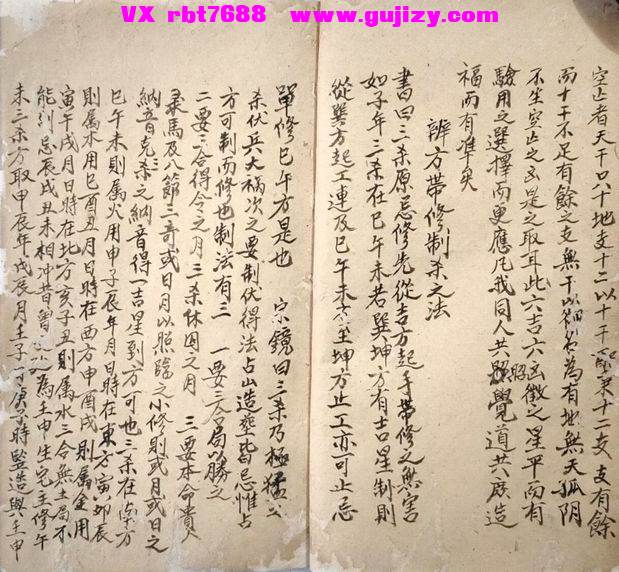 VX rbt7688 www.gujizy.com
空亡者天干只十地支十二以十干配乘十二支支有餘
而十干不足有餘之支無干以為有地無天孤陰
不生空亡之名是之取耳此六吉六凶徵之星平而有
驗用之選擇而更應凡我同人共照覺道共庶造
福而有準矣
辨方帶修制殺之法
書曰三杀原忌修先從吉方起手帶修之無害
如子年三杀在巳午未若巽坤方有吉星制則
從巽方起工連及巳午未方至坤方止工亦可止忌
單修巳午方是也 宗鏡曰三杀乃極猛之
杀伏兵大禍次之要制伏得法占山造葬皆忌惟占
方可制而修也制法有三 一要三合局以勝之
二要三合得令之月三杀休囚之月 三要本命貴
祿馬及八節三奇或日月以照臨之小修則或月或日之
納音克杀之納音得一吉星到方可也三杀在南方
巳午未則属火用申子辰年月日時在東方寅卯辰
則属木用巳酉丑月日時在西方申酉戌則属金用
寅午戌月日時在北方亥子丑則属水三合無土局不
能制忌辰戌丑未相冲昔曾為壬申生宅主修午
未三杀方取甲辰年戊辰月壬子日庚子時監造與壬申